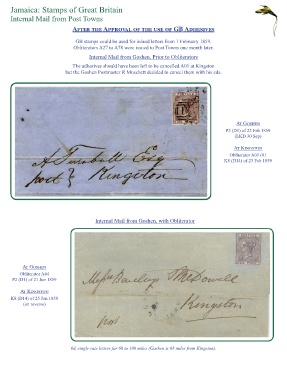 Jamaica: Stamps of Great Britain
Internal Mail from Post Towns
AFTER THE APPROVAL OF THE USE OF GB ADHESIVES
GB stamps could be used for inland letters from 1 February 1859.
Obliterators A27 to A78 were issued to Post Towns one month later.
Internal Mail from Goshen, Prior to Obliterators
The adhesives should have been left to be cancelled A01 at Kingston
but the Goshen Postmaster R Muschett decided to cancel them with his cds.
AT GOSHEN
22 Feb 1859
AT KINGSTON
Obliterator A01
of 23 Feb 1859
A Turnbull Esq
post
Kingston
Internal Mail from Goshen, with Obliterator
AT GOSHEN
Obliterator
1859
AT KINGSTON
1859
(on reverse)
Messrs Barclay & McDowell
Kingston
post
6d. single rate letters for 60 to 100 miles (Goshen is 64 miles from Kingston).